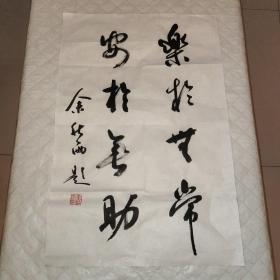 樂於無常
安於無助
余秋雨題